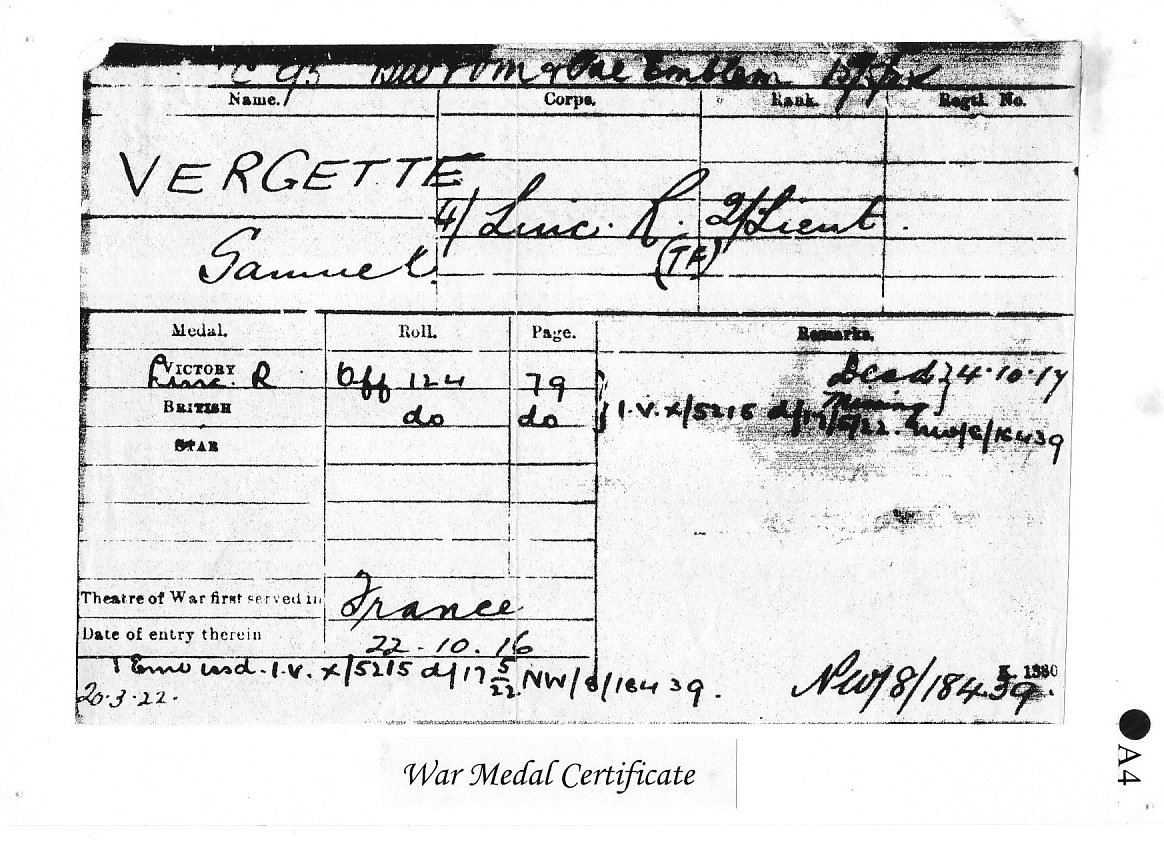 Emblem
Name. Corps. Rank. Regtl. No.
VERGETTE
4/ Linc. R. 2/Lieut.
(TF)
Samuel.
Medal. Roll. Page. Remarks.
VICTORY Off 124 79 Dead } 24.10.17
Linc. R Missing
BRITISH do do } I.V. x/5215 d/17/5/22. NW/8/18439
STAR
Theatre of War first served in France
Date of entry therein 22.10.16
1 Emb issd. I.V. x/5215 d/17 5/22 NW/8/18439.
20.3.22.
K. 1380
NW/8/18439.
War Medal Certificate
A4